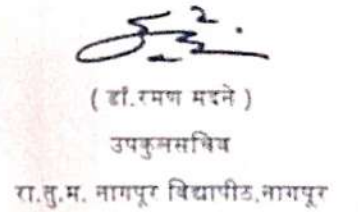 ( डॉ.रमण मदने )
उपकुलसचिव
रा.तु.म. नागपूर विद्यापीठ,नागपूर